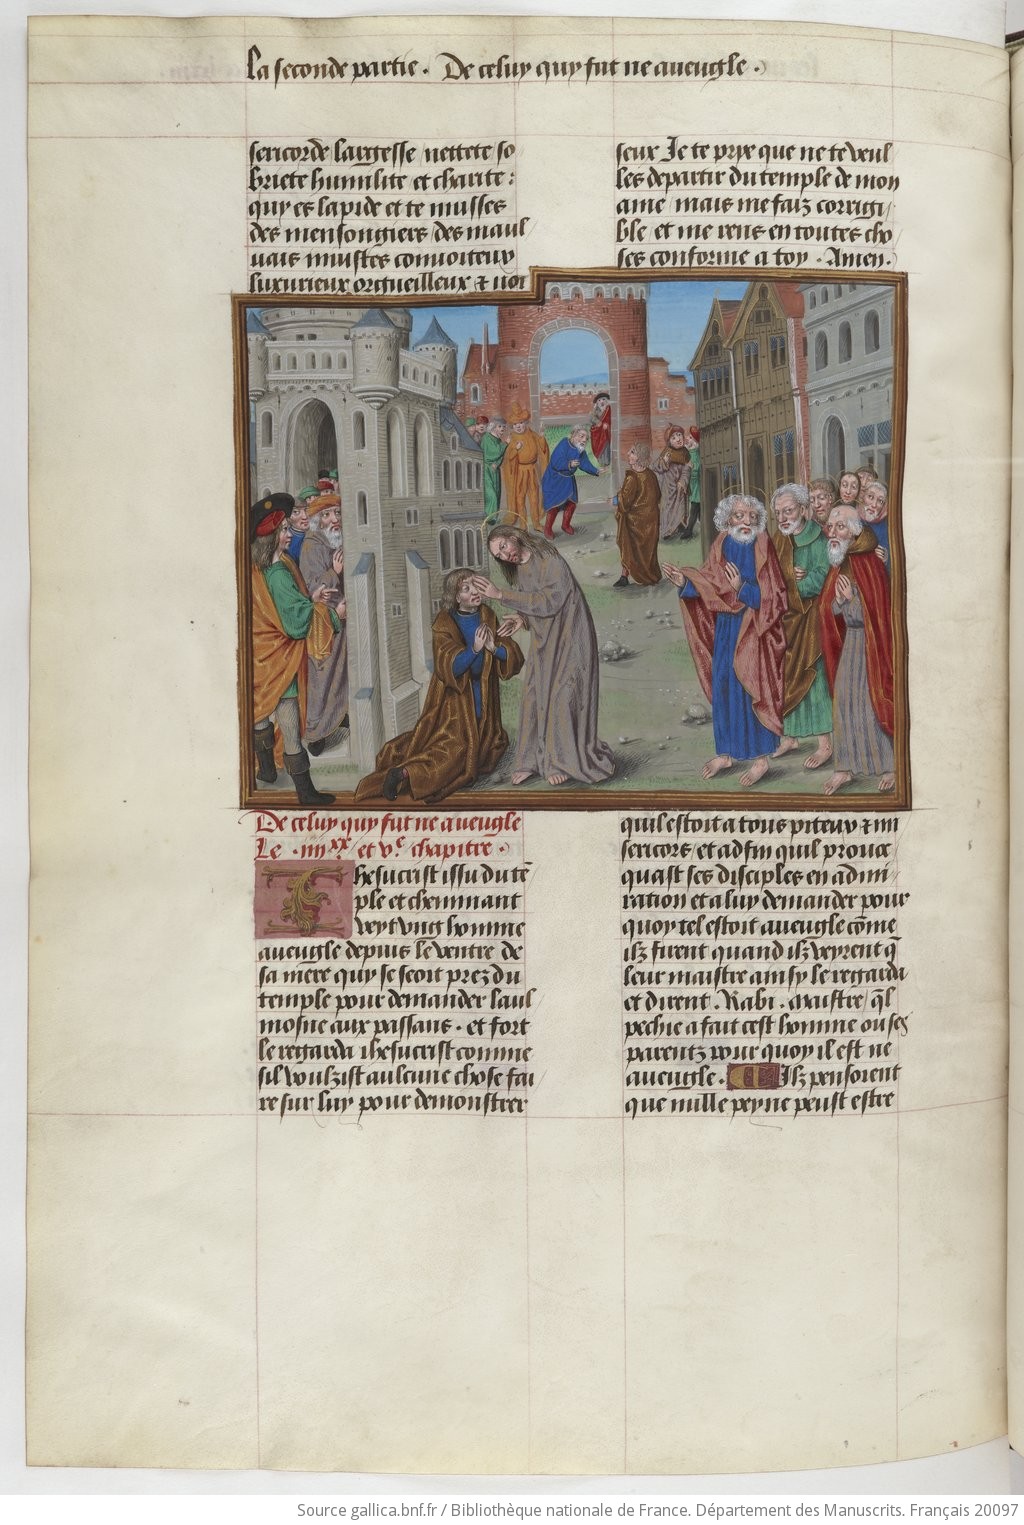 La seconde partie. De celuy quy fut ne aueugle.
sericorde largesse nettete so
briete humilite et charite:
quy es lapide et te musses
des mensongiers des maul
uais iniustes conuoiteux
luxurieux orgueilleux &
seux Je te prye que ne te veul
les departir du temple de mon
ame mais me faiz corrigi
ble et me rens en toutes cho
ses conforme a toy. Amen.
De celuy quy fut ne aueugle
Le .iiii.xx et v.e chapitre.
Ihesucrist issu du tē
ple et cheminant
veyt vng homme
aueugle depuis le ventre de
sa mere quy se seoit prez du
temple pour demander laul
mosne aux passans. et fort
le regarda ihesucrist comme
sil voulzist aulcune chose fai
re sur luy pour demonstrer
quil estoit a tous piteux & mi
sericors et adfin quil prouoc
quast ses disciples en admi
ration et a luy demander pour
quoy tel estoit aueugle cōme
ilz furent quand ilz veyrent q̄
leur maistre ainsy le regarda
et dirent. Rabi. maistre q̄l
pechie a fait cest homme ou ses
parentz pour quoy il est ne
aueugle. Ilz pensoient
que nulle peyne peust estre
Source gallica.bnf.fr / Bibliothèque nationale de France. Département des Manuscrits. Français 20097